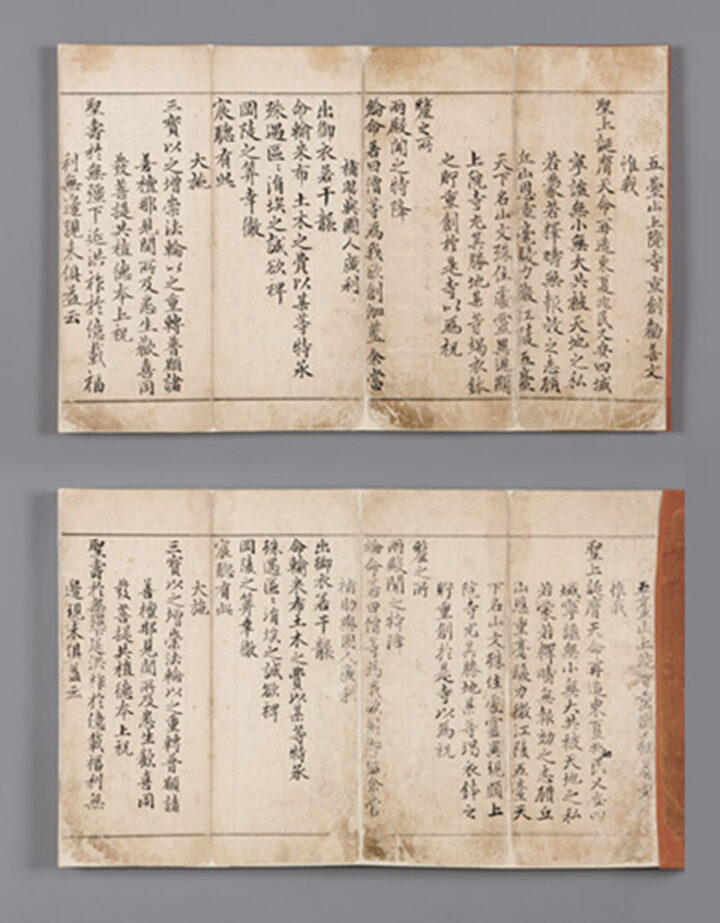 五臺山上院寺重創勸善文
惟我
聖上誕膺天命再造東夏兆民大安四域
寧謐無小無大共被天地之私
若蒙若釋時無報效之志顧
丘山恩重毫髮力微江陵五臺
天下名山文殊住處靈異現顯
上院寺尤其勝地某等竭衣鉢
之貯重創於是寺以爲祝
釐之所
兩殿聞之特降
綸命若曰僧等爲我欲創伽藍余當
捕助與國人廣利
出御衣若干襲
命輸米布土木之費以某等特承
殊遇區〻涓埃之誠欲裨
岡陵之算幸徹
宸聰有此
大施
三寶以之增崇法輪以之重轉普願諸
善檀那見聞所及悉生歡喜同
發菩提共植德本上祝
聖壽於無疆下延洪祚於億載福
利無邊現未俱益云
五臺山上院寺重創勸善文
惟我
聖上誕膺天命再造東夏兆民大安四
域寧謐無小無大共被天地之私
若蒙若釋時無報効之志顧丘
山恩重毫髮力微江陵五臺天
下名山文殊住處靈異現顯上
院寺尤其勝地某等竭衣鉢之
貯重創於是寺以爲祝
釐之所
兩殿聞之特降
綸命若曰僧等爲我欲創伽藍余當
捕助與國人廣利
出御衣若干襲
命輸米布土木之費以某等特承
殊遇區〻涓埃之誠欲裨
岡陵之算幸徹
宸聰有此
大施
三寶以之增崇法輪以之重轉普願諸
善檀那見聞所及悉生歡喜同
發菩提共植德本上祝
聖壽於無疆下延洪祚於億載福利無
邊現未俱益云